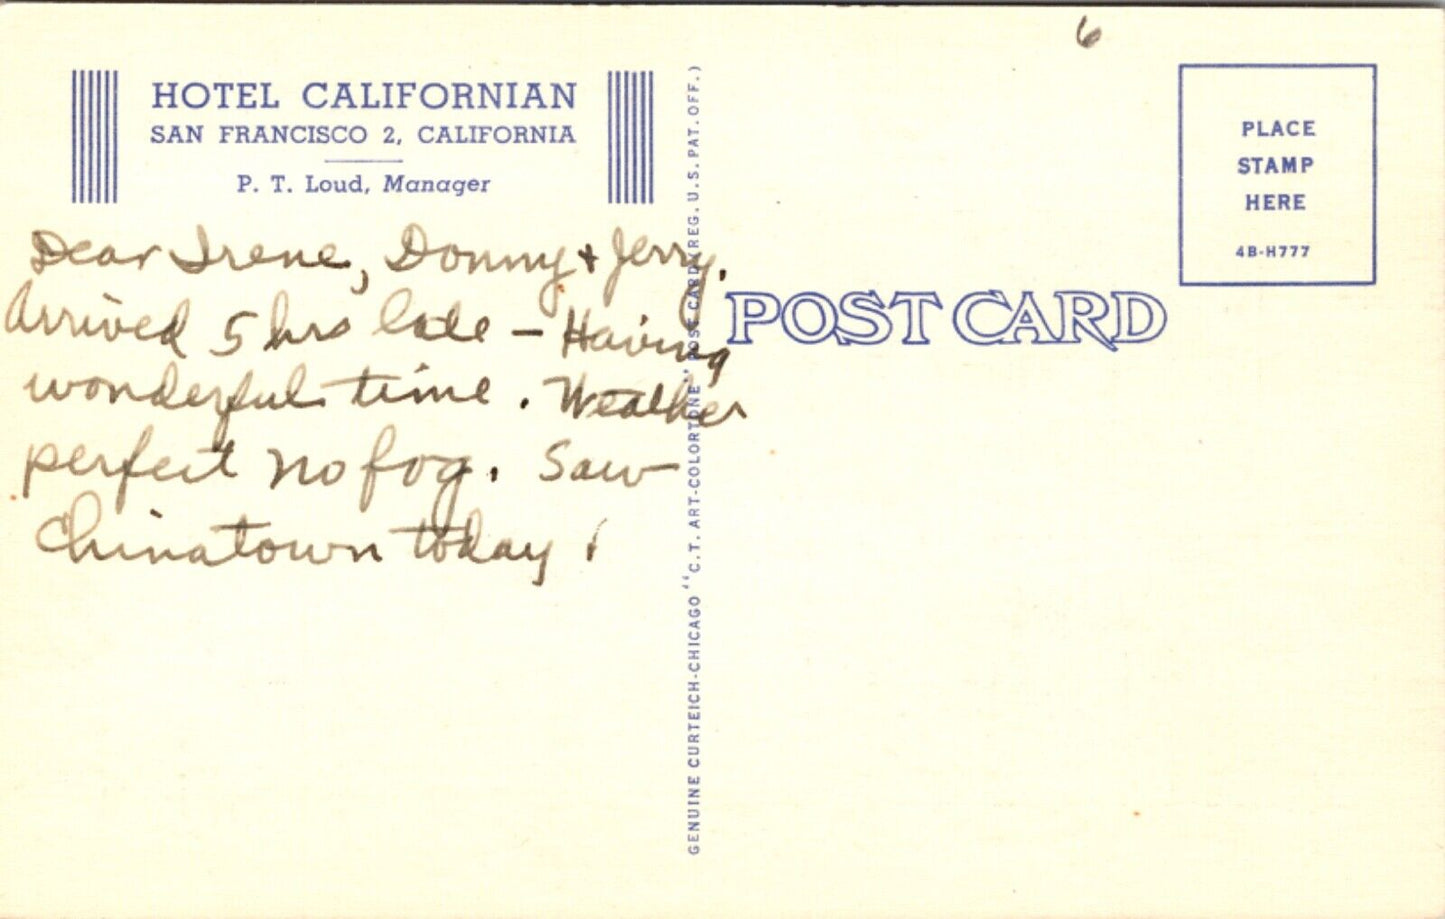 6
HOTEL CALIFORNIAN
SAN FRANCISCO 2, CALIFORNIA
P. T. Loud, Manager
Dear Irene, Donny & Jerry.
Arrived 5 hrs late – Having
wonderful time. Weather
perfect no fog. Saw
Chinatown today!
GENUINE CURTEICH-CHICAGO "C.T. ART-COLORTONE" POST CARD (REG. U.S. PAT. OFF.)
POST CARD
PLACE
STAMP
HERE
4B-H777